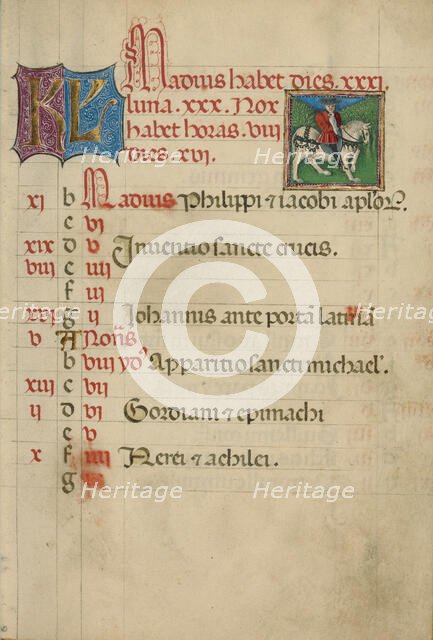 KL Madius habet dies. xxxi.
luna. xxx. Nox
habet horas. viii
dies. xvi.
xi b Madius Philippi ⁊ iacobi aplor.
c vi
xix d v Inuentio sancte crucis.
viii e iiii
f iii
g ii Johannis ante portā latinā
v A Nonˢ
b viii yd' Apparitio sancti michael'.
xiii c vii
ii d vi Gordiani ⁊ epimachi
e v
x f iiii Nerei ⁊ achilei.
g
Heritage Heritage
Heritage Heritage
Heritage Heritage